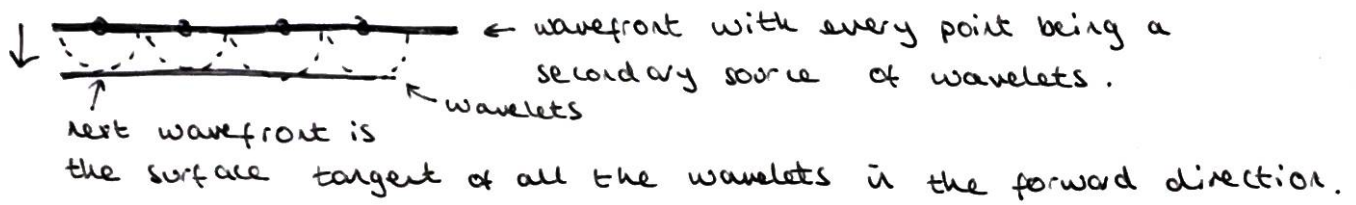 ← wavefront with every point being a
secondary source of wavelets.
wavelets
next wavefront is
the surface tangent of all the wavelets in the forward direction.